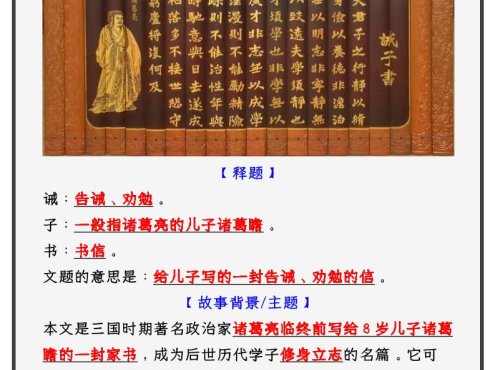 誡子書
夫君子之行靜以脩
身儉以養德非澹泊
无以明志非寧靜无
以致遠夫學須靜也
才須學也非學无以
廣才非志无以成學
慆漫則不能勵精險
躁則不能治性年與
時馳意與日去遂成
枯落多不接世悲守
窮廬將復何及
諸葛亮
【释题】
诫：告诫、劝勉。
子：一般指诸葛亮的儿子诸葛瞻。
书：书信。
文题的意思是：给儿子写的一封告诫、劝勉的信。
【故事背景/主题】
本文是三国时期著名政治家诸葛亮临终前写给 8 岁儿子诸葛
瞻的一封家书，成为后世历代学子修身立志的名篇。它可